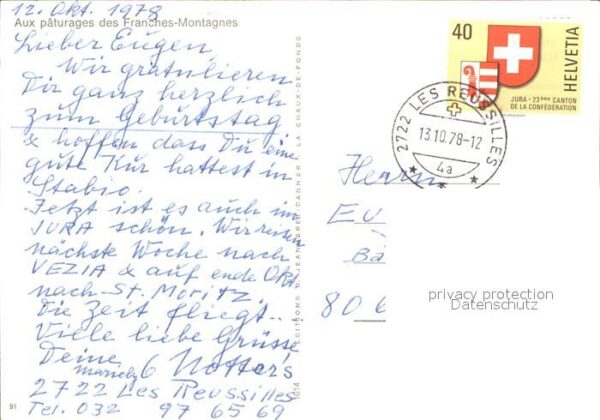 12. Okt. 1978
Aux pâturages des Franches-Montagnes
Lieber Eugen
Wir gratulieren
Dir ganz herzlich
zum Geburtstag
& hoffen dass Du eine
gute Kur hattest in
Stabio.
Jetzt ist es auch im
JURA schön. Wir reisen
nächste Woche nach
VEZIA & auf ende Okt
nach St. Moritz.
Die Zeit fliegt..
Viele liebe Grüsse
Deine
2722 Les Reussilles
Tel. 032 97 65 69
91
1014 EDITIONS JEANNERET-DANNER LA CHAUX-DE-FONDS
40
HELVETIA
JURA - 23ème CANTON
DE LA CONFÉDÉRATION
2722 LES REUSSILLES
13.10.78-12
4a
Herrn
EU
Bä
806
privacy protection
Datenschutz